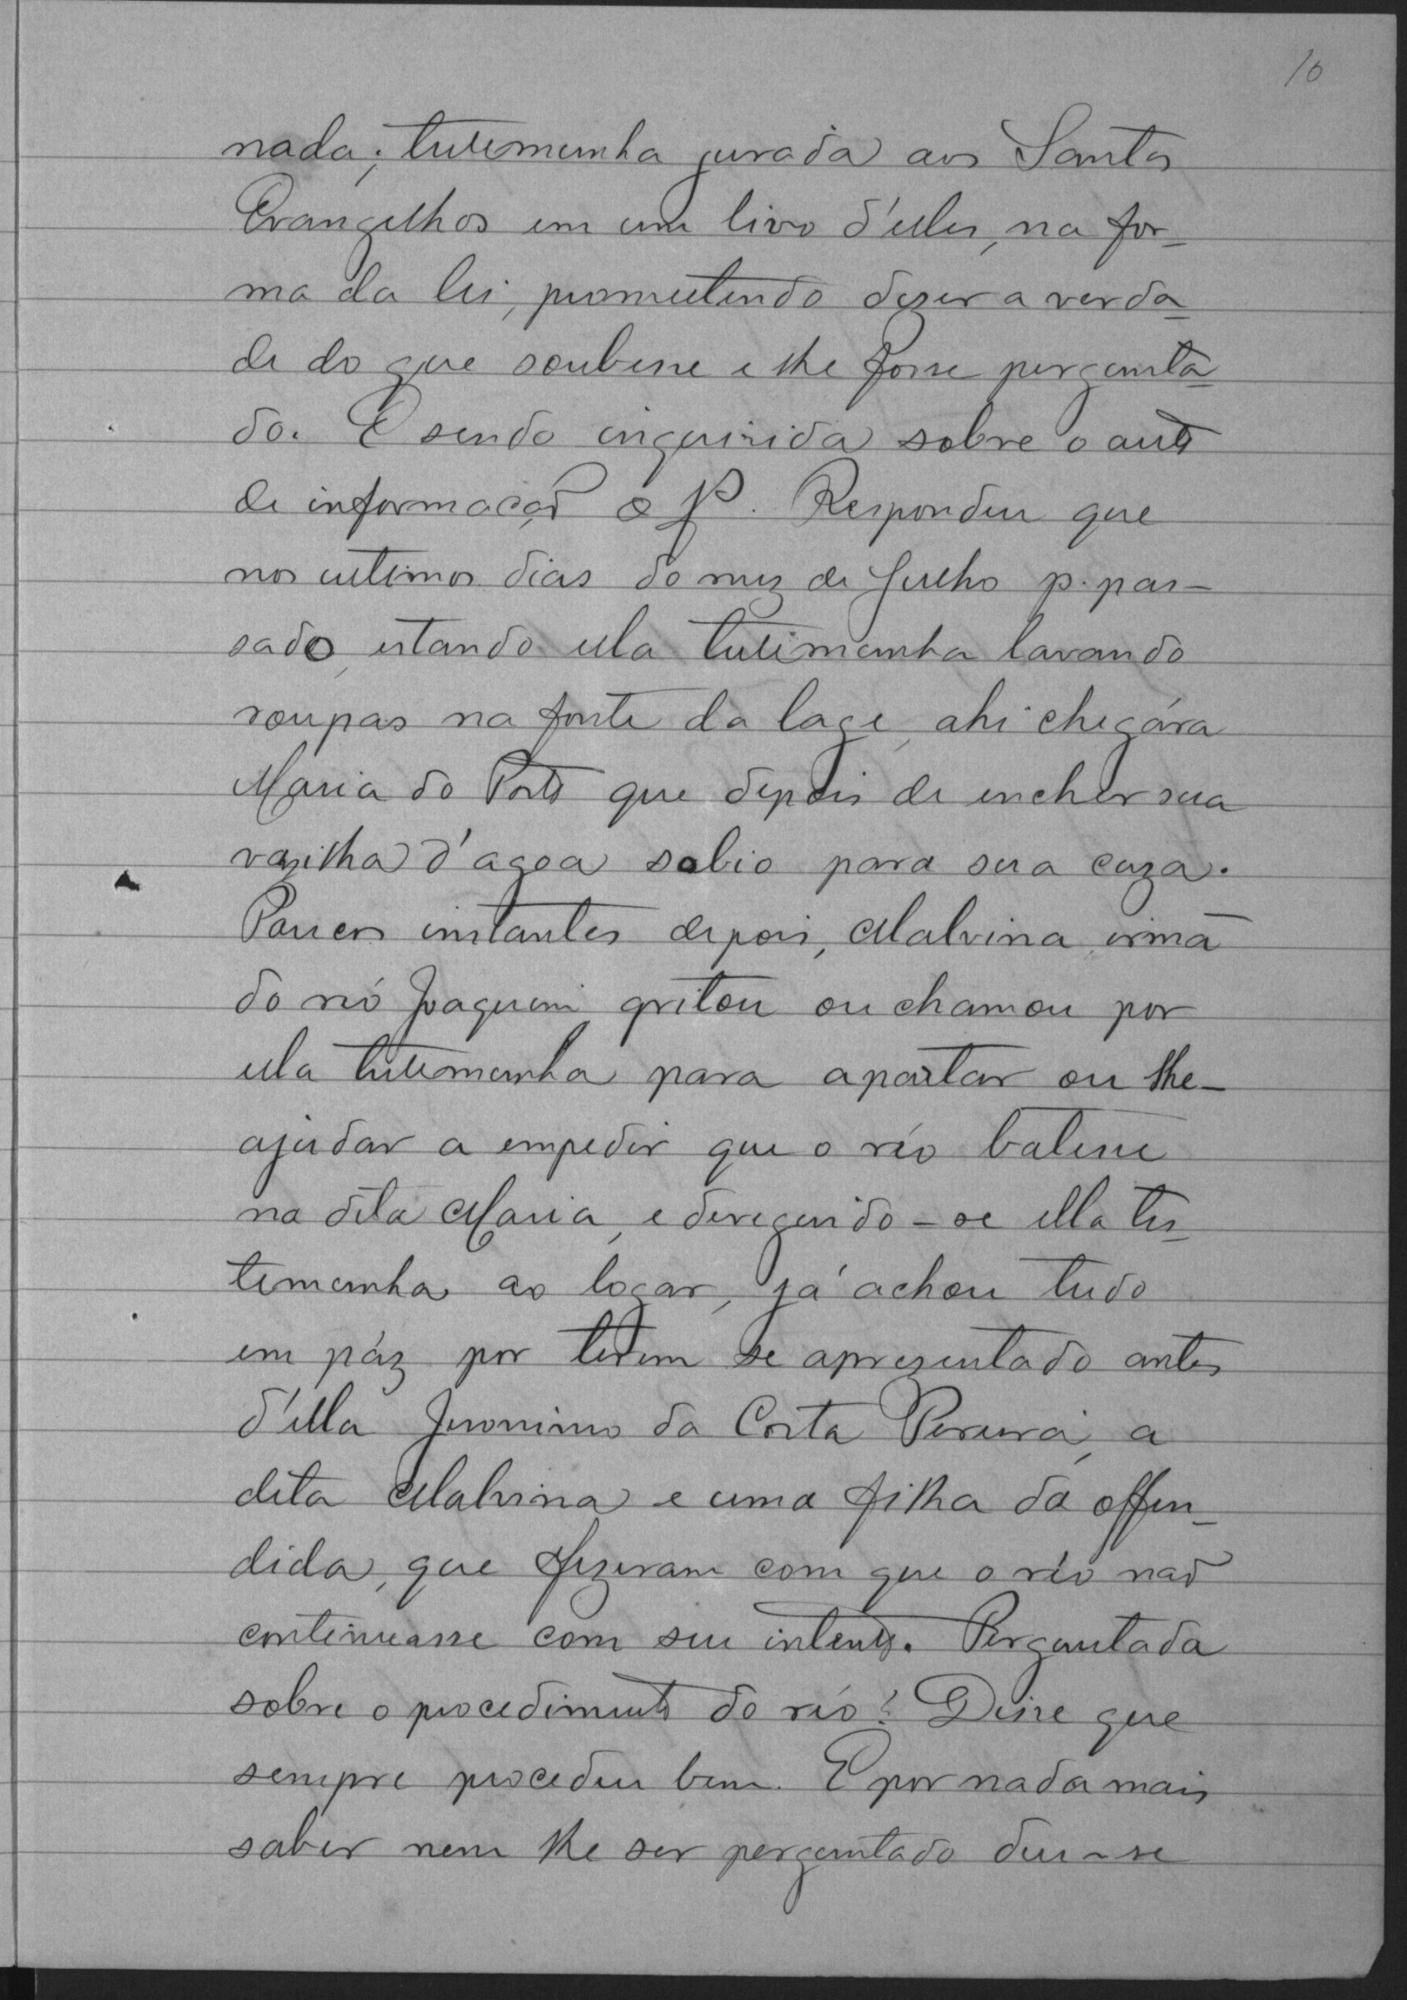 10
nada; testemunha jurada aos Santos
Evangelhos em um livro d'elles, na for-
ma da lei, promettendo dizer a verda-
de do que soubesse e lhe fosse pergunta-
do. E sendo inquirida sobre o auto
de informação de f. Respondeu que
nos ultimos dias do mez de Julho p. pas-
sado, estando ella testimunha lavando
roupas na fonte da lage, ahi chegára
Maria do Porto que depois de encher sua
vazilha d'agoa sobio para sua caza.
Poucos instantes depois, Malvina, irmã
do réo Joaquim, gritou ou chamou por
ella testemunha para apartar ou lhe-
ajudar a empedir que o réo batesse
na dita Maria, e deregindo-se ella tes-
temunha ao logar, já achou tudo
em páz por terem se aprezentado antes
d'ella Jeronimo da Costa Pereira, a
dita Malvina e uma filha da offen-
dida, que fizeram com que o réo não
continuasse com seu intento. Perguntada
sobre o procedimento do réo? Disse que
sempre procedeu bem. E por nada mais
saber nem lhe ser perguntado deu-se